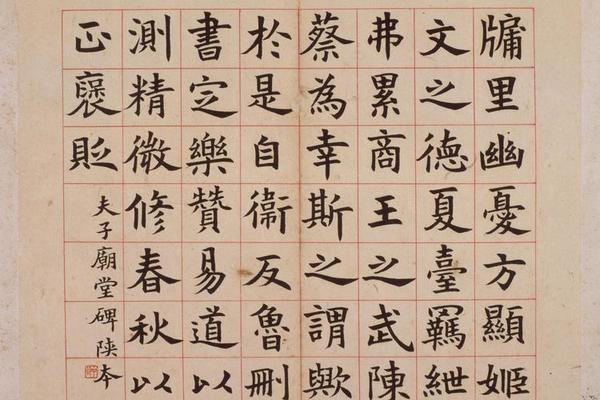 牖里幽憂方顯姬
文之德夏臺羈紲
弗累商王之武陳
蔡為幸斯之謂歟
於是自衞反魯刪
書定樂贊易道以
測精微修春秋以
正褒貶
夫子廟堂碑陝本